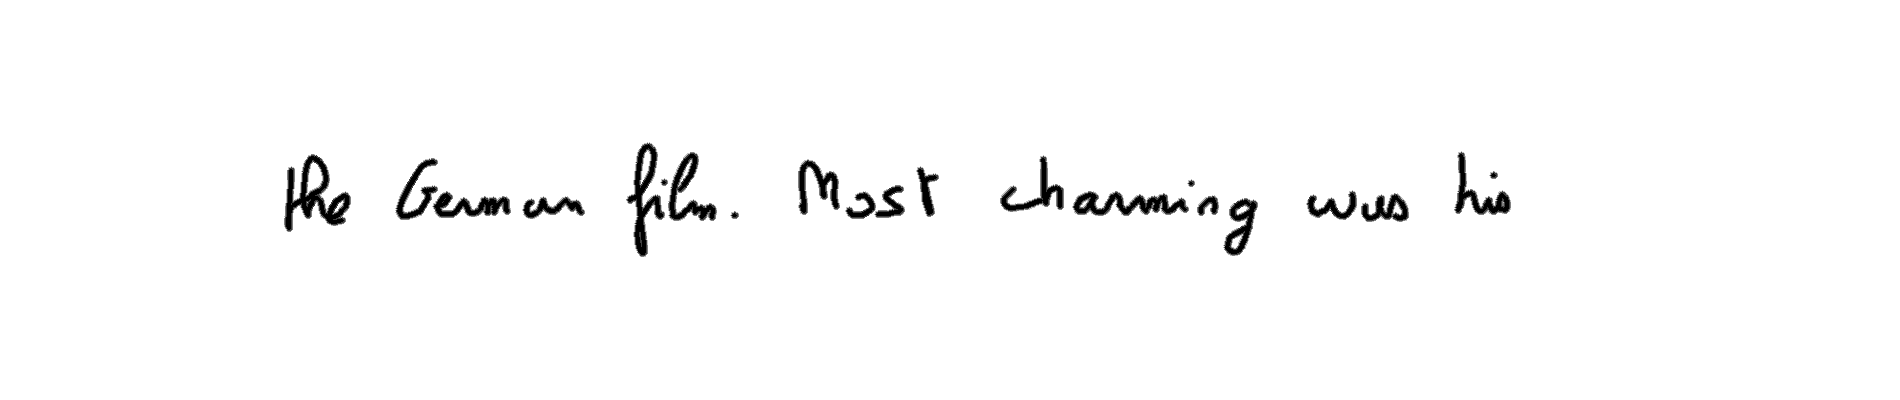 the German film. Most charming was his